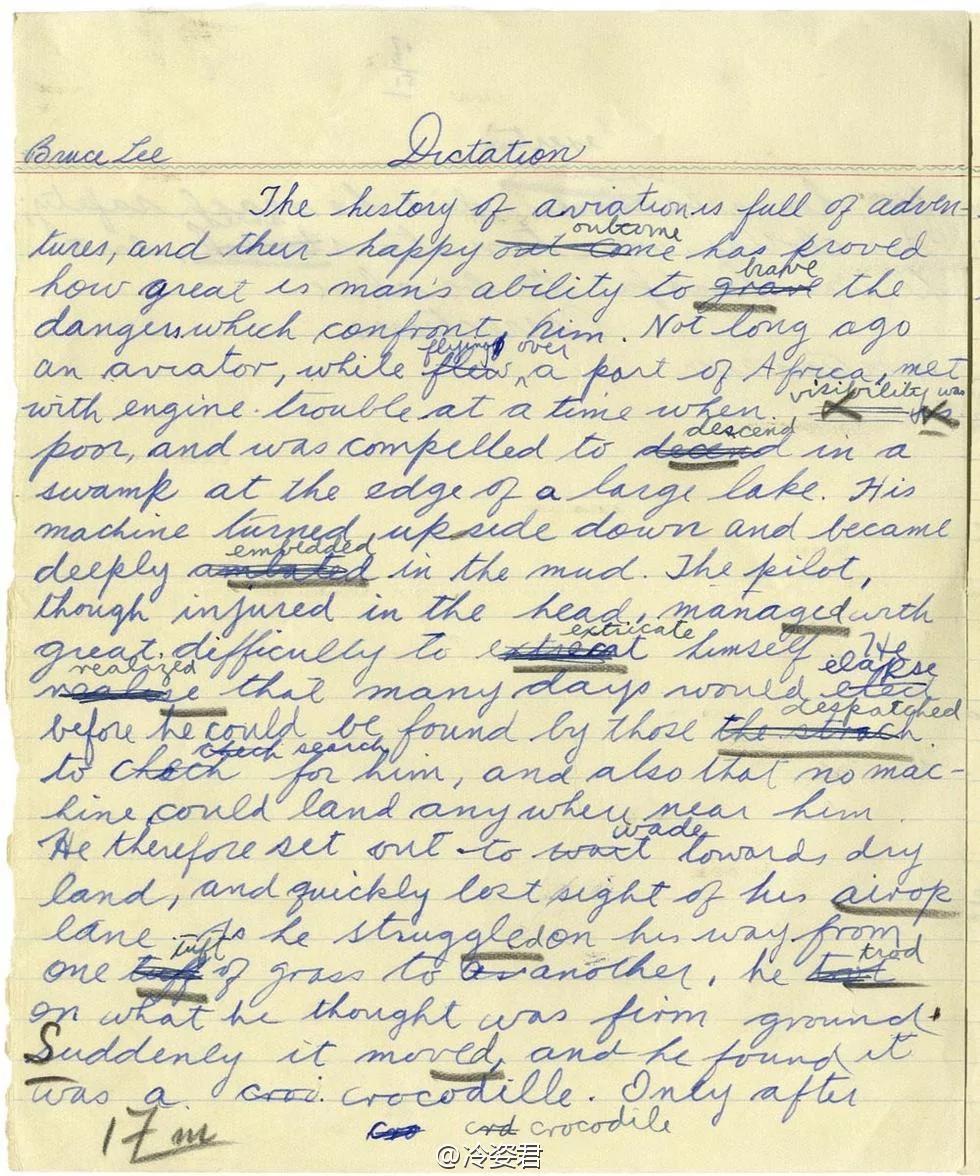 Bruce Lee Dictation
The history of aviation is full of adven-
outcome
tures, and their happy out come has proved
brave
how great is man's ability to grave the
dangers which confront him. Not long ago
flying over
an aviator, while flew a part of Africa, met
visibility was
with engine trouble at a time when
descend
poor, and was compelled to decend in a
swamp at the edge of a large lake. His
machine turned upside down and became
embedded
deeply in the mud. The pilot,
though injured in the head, managed with
extricate
great difficully to extrecat himself. He
realized elapse
that many days would
despatched
before he could be found by those the strach
check search
to chech for him, and also that no mac-
hine could land anywhere near him.
wade
He therefore set out to wait towards dry
land, and quickly lost sight of his airop
lane. As he struggled on his way from
tuft trod
one tuff of grass to as another, he
on what he thought was firm ground.
Suddenly it moved, and he found it
was a croi. crocodille. Only after
17 m cro crd crocodile
@冷姿君